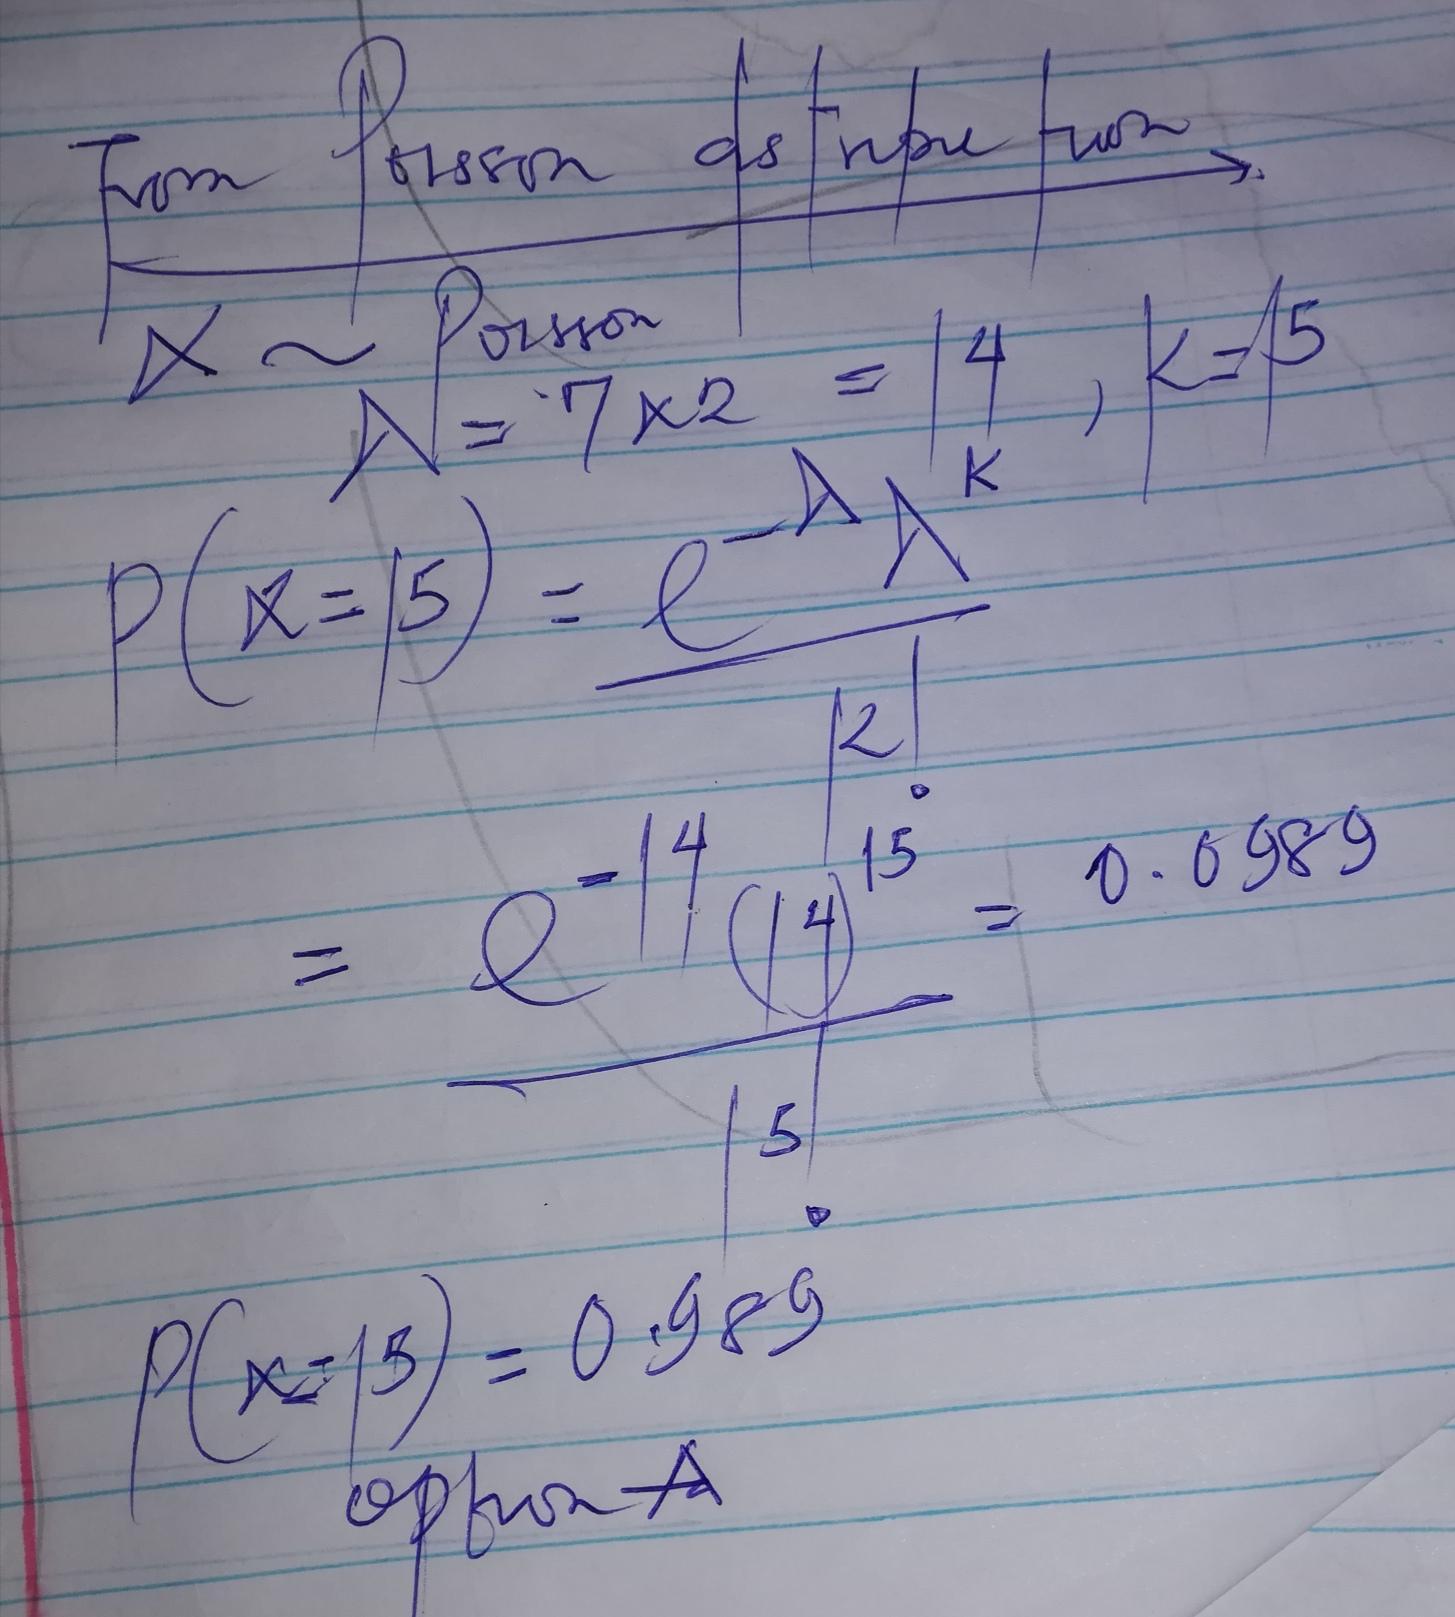 From Poisson distribution
X ~ Poisson
λ = 7x2 = 14, k=15
P(x=15) = e^-λ λ^k
k!
= e^-14 (14)^15 = 0.0989
15!
P(x=15) = 0.989
option A